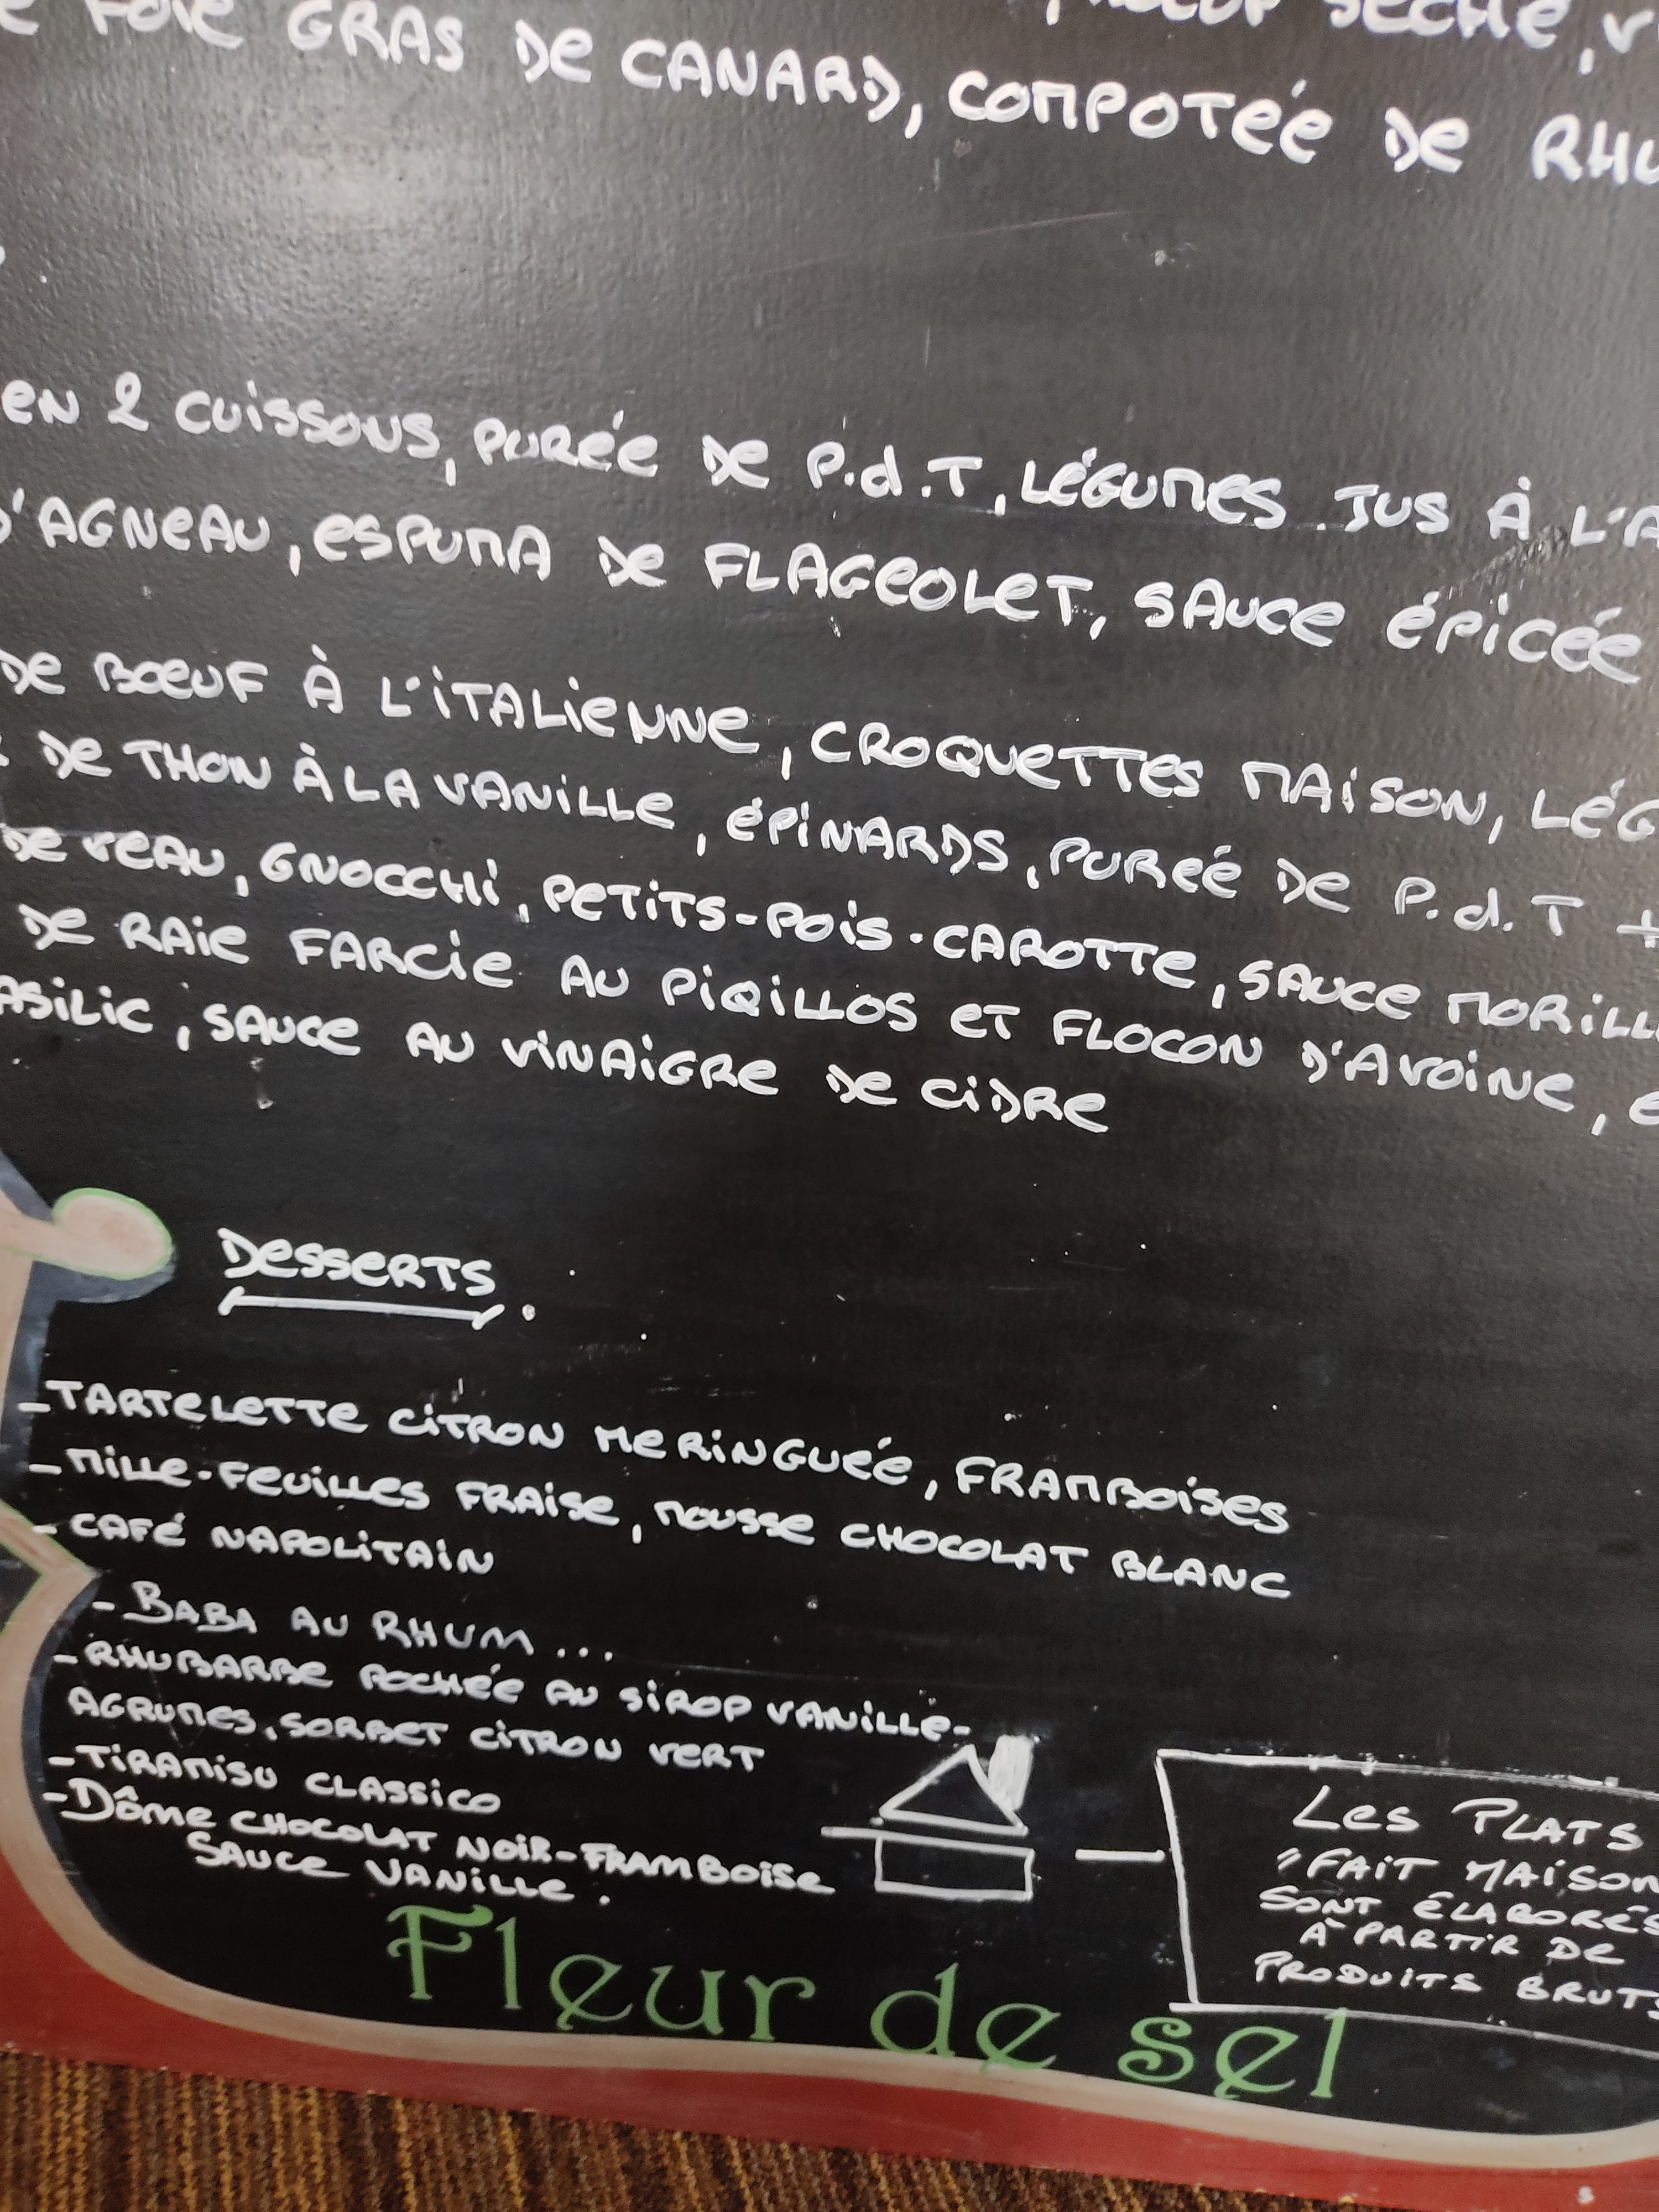 FOIE GRAS DE CANARD, COMPOTÉE DE
SÉCHÉ,
EN 2 CUISSONS, PURÉE DE P.d.T, LÉGUMES. JUS À
D'AGNEAU, ESPUMA DE FLAGEOLET, SAUCE ÉPICÉE
DE BŒUF À L'ITALIENNE, CROQUETTES MAISON,
DE THON À LA VANILLE, ÉPINARDS, PUREÉ DE P.d.T +
DE VEAU, GNOCCHI, PETITS-POIS-CAROTTE, SAUCE
DE RAIE FARCIE AU PIQILLOS ET FLOCON D'AVOINE,
, SAUCE AU VINAIGRE DE CIDRE
DESSERTS.
-TARTELETTE CITRON MERINGUÉE, FRAMBOISES
-MILLE-FEUILLES FRAISE, MOUSSE CHOCOLAT BLANC
-CAFÉ NAPOLITAIN
-BABA AU RHUM...
-RHUBARBE POCHÉE AU SIROP VANILLE-
AGRUMES, SORBET CITRON VERT
-TIRAMISU CLASSICO
-DÔME CHOCOLAT NOIR-FRAMBOISE
SAUCE VANILLE.
LES PLATS
"FAIT MAISON
SONT ÉLABORÉS
À PARTIR DE
PRODUITS BRUTS
Fleur de sel